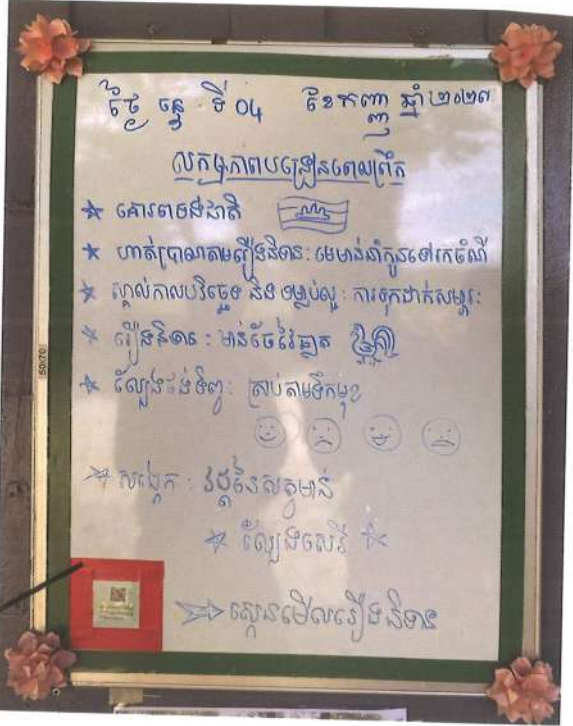 ថ្ងៃ ចន្ទ ទី 04 ខែកញ្ញា ឆ្នាំ ២០២៣
លកម្មភាពបង្រៀនពេលព្រឹក
គោរពទង់ជាតិ
ហាត់ប្រាណតាមរឿងនិទាន: មេមាន់នាំកូនទៅរកចំណី
ស្គាល់កាលបរិច្ឆេទ និង ទម្លាប់ល្អ: ការទុកដាក់សម្ភារៈ
រឿងនិទាន: មាន់ចែវៃឆ្លាត
ល្បែងថង់ទិព្វ: ត្រាប់តាមទឹកមុខ
សង្កេត: វដ្តនៃសត្វមាន់
ល្បែងសេរី
ស្កេនមើលរឿងនិទាន
50x70